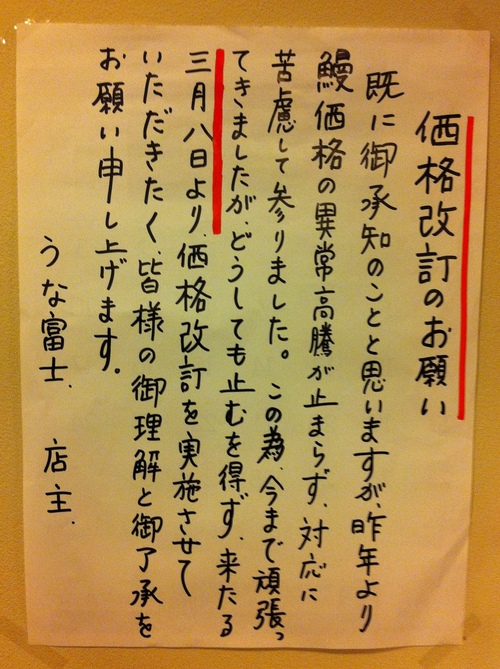 価格改訂のお願い
既に御承知のことと思いますが、昨年より
鰻価格の異常高騰が止まらず、対応に
苦慮して参りました。この為、今まで頑張っ
てきましたが、どうしても止むを得ず、来たる
三月八日より、価格改訂を実施させて
いただきたく、皆様の御理解と御了承を
お願い申し上げます。
うな富士、店主、